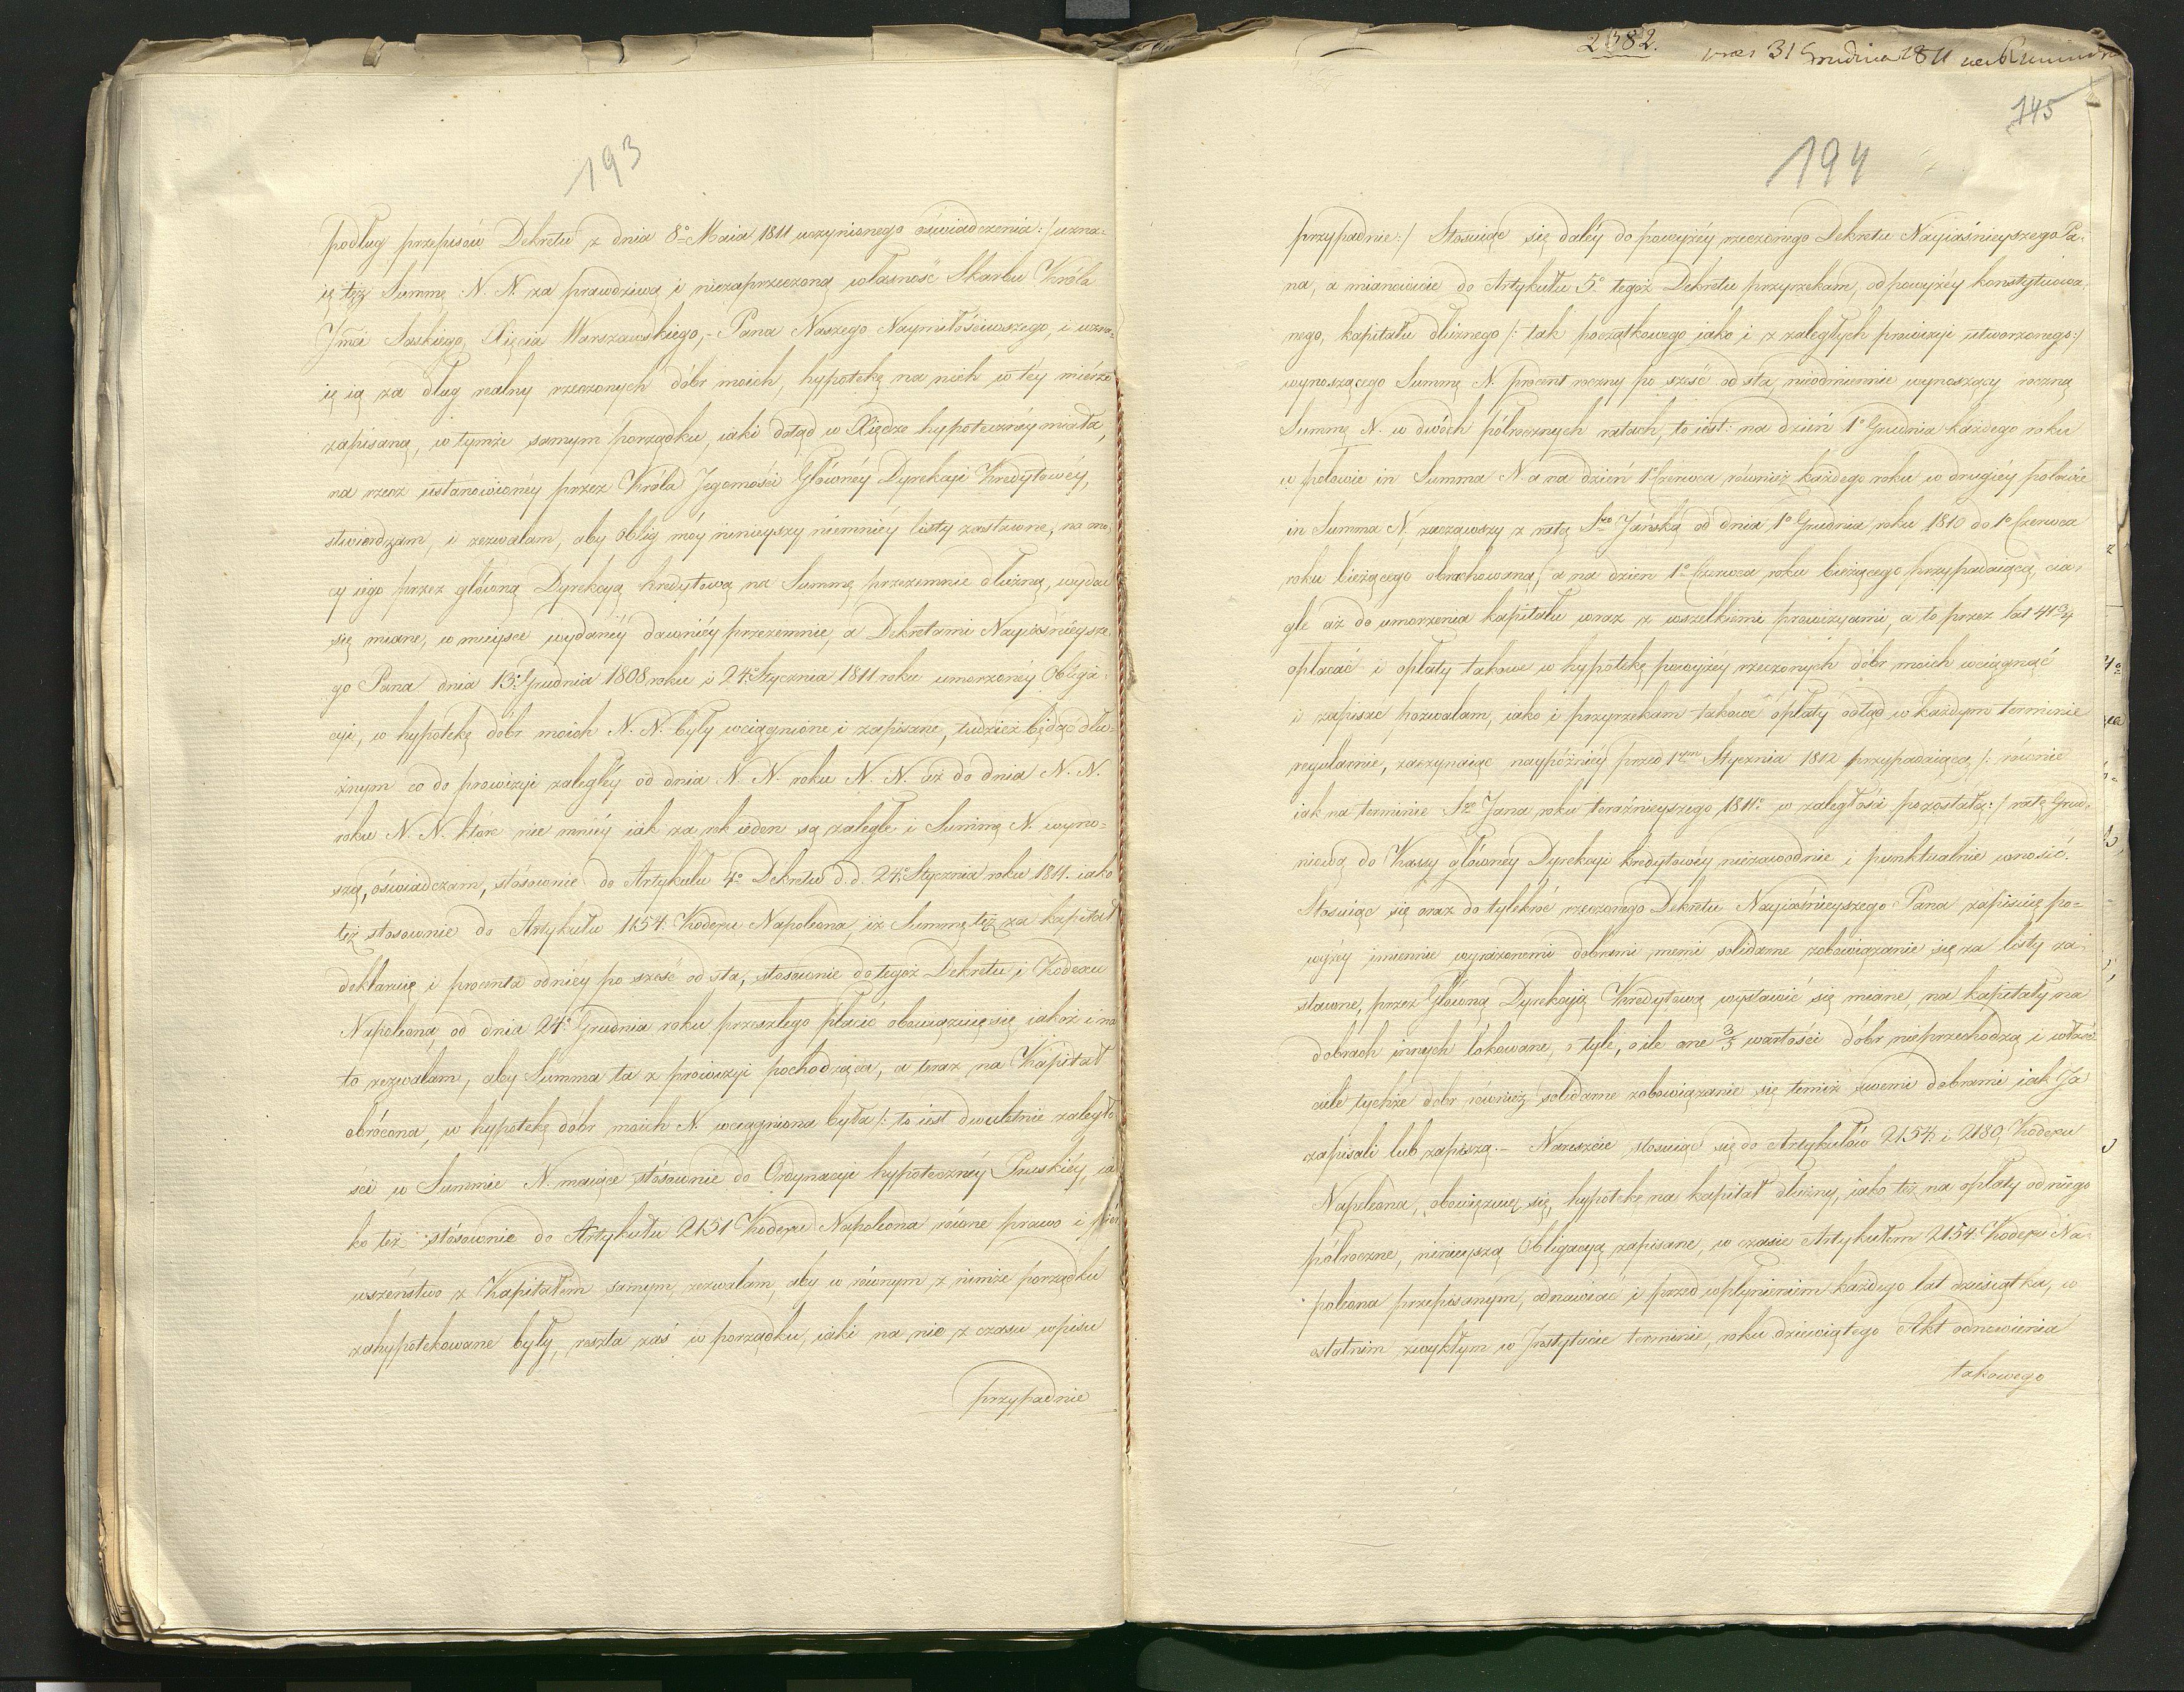 193
podług przepisów Dekretu z dnia 8º Maia 1811 uczynionego oświadczenia:/ uzna-
ię tęż Summę N. N. za prawdziwą i niezaprzeczoną własność Skarbu Króla
Jmci Saskiego, Xięcia Warszawskiego,- Pana Naszego Naymiłościwszego, i uzna-
ię ią za dług realny rzeczonych dóbr moich, hypotekę na nich w tey mierze
zapisaną, w tymże samym porządku, iaki dotąd w Xiędze hypoteczney miała,
na rzecz ustanowionéy przez Króla Jegomości Głównéy Dyrekcyi Kredytowéy,
stwierdzam, i zezwalam, aby oblig móy ninieyszy niemniéy listy zastawne, na mo-
cy iego przez główną Dyrekcyą kredytową na Summę przezemnie dłużną, wydać
się miane, w mieysce wydanéy dawniéy przezemnie, a Dekretami Nayiaśnieysze-
go Pana dnia 13º Grudnia 1808 roku i 24º Stycznia 1811 roku umorzonéy Obliga-
cyi, w hypotekę dóbr moich N. N. były wciągnione i zapisane, tudzież będąc dłu-
żnym co do prowizyi zaległéy od dnia N. N. roku N. N. aż do dnia N. N.
roku N. N. które nie mniéy iak za rok ieden są zaległe i Summę N. wyno-
szą, oświadczam, stósownie do Artykułu 4º Dekretu d. d. 24º Stycznia roku 1811. iako
też stosownie do Artykułu 1154. Kodexu Napoleona, iż Summę tęż za kapitał
deklaruię i procenta odniéy po sześć od sta, stósownie do tegoż Dekretu i Kodexu
Napoleona, od dnia 24º Grudnia roku przeszłego płacić obowiązuię się iakoż i na
to zezwalam, aby Summa ta z prowizyi pochodząca, a teraz na Kapitał
obrócona, w hypotekę dóbr moich N. wciągniona była/: to iest dwuletnie zaległo-
ści w Summie N. maiące stósownie do Ordynacyi hypoteczney Pruskiéy, ia-
ko też stósownie do Artykułu 2151 Kodexu Napoleona równe prawo i pier-
wszeństwo z Kapitałem samym, zezwalam, aby w równym z nimże porządku
zahypotekowane były, reszta zaś w porządku, iaki na nie z czasu wpisu
przypadnie
2082.
31 Grudnia 1811
145
194
przypadnie:/ Stosuiąc się daléy do powyżéy rzeczonego Dekretu Nayiaśnieyszego Pa-
na, a mianowicie do Artykułu 5º tegoż Dekretu przyrzekam, od powyżéy konstytuowa-
nego, kapitału dłużnego /: tak początkowego iako i z zaległych prowizyi utworzonego:/
wynoszącego Summę N. procent roczny po sześć od sta, nieodmiennie wynoszący roczną
Summę N. w dwóch półrocznych ratach, to iest: na dzień 1º Grudnia każdego roku
w połowie in Summa N. a na dzień 1º Czerwca również każdego roku w drugiéy połowie
in Summa N. zacząwszy z ratą Sgo Jańską od dnia 1º Grudnia roku 1810 do 1º Czerwca
roku bieżącego obrachowaną, a na dzień 1º Czerwca roku bieżącego przypadaiącą, cią-
gle aż do umorzenia kapitału wraz z wszelkiemi prowizyami, a to przez lat 41 3/4
opłacać i opłaty takowe w hypotekę powyżéy rzeczonych dóbr moich wciągnąć
i zapisać pozwalam, iako i przyrzekam takowe opłaty odtąd w każdym terminie
regularnie, zaczynaiąc naypóźniéy przed 1ym Stycznia 1812 przypadaiącą /: równie
iak na terminie Sgo Jana roku teraźnieyszego 1811º w zaległości pozostałą:/ ratę Grud-
niową do Kassy głównéy Dyrekcyi kredytowéy niezawodnie i punktualnie wnosić.
Stosuiąc się oraz do tylekroć rzeczonego Dekretu Nayiaśnieyszego Pana zapisuię po-
wyżéy imiennie wyrażonemi dobrami memi solidarne zobowiązanie się za listy za-
stawne, przez Główną Dyrekcyią Kredytową wystawić się miane, na kapitały na
dobrach innych lokowane, o tyle, o ile one 3/5 wartości dóbr nieprzechodzą i właści-
ciele tychże dóbr również solidarne zobowiązanie się temiż swemi dobrami iak Ja
zapisali lub zapiszą.- Nareszcie stosuiąc się do Artykułów 2154 i 2180, Kodexu
Napoleona, obowiązuię się, hypotekę na kapitał dłużny, iako też na opłaty od niego
półroczne, ninieyszą Obligacyą zapisane, w czasie Artykułem 2154. Kodexu Na-
poleona przepisanym, odnawiać i przed upłynieniem każdego lat dziesiątku, w
ostatnim zwykłym w Instytucie terminie, roku dziewiątego Akt odnowienia
takowego